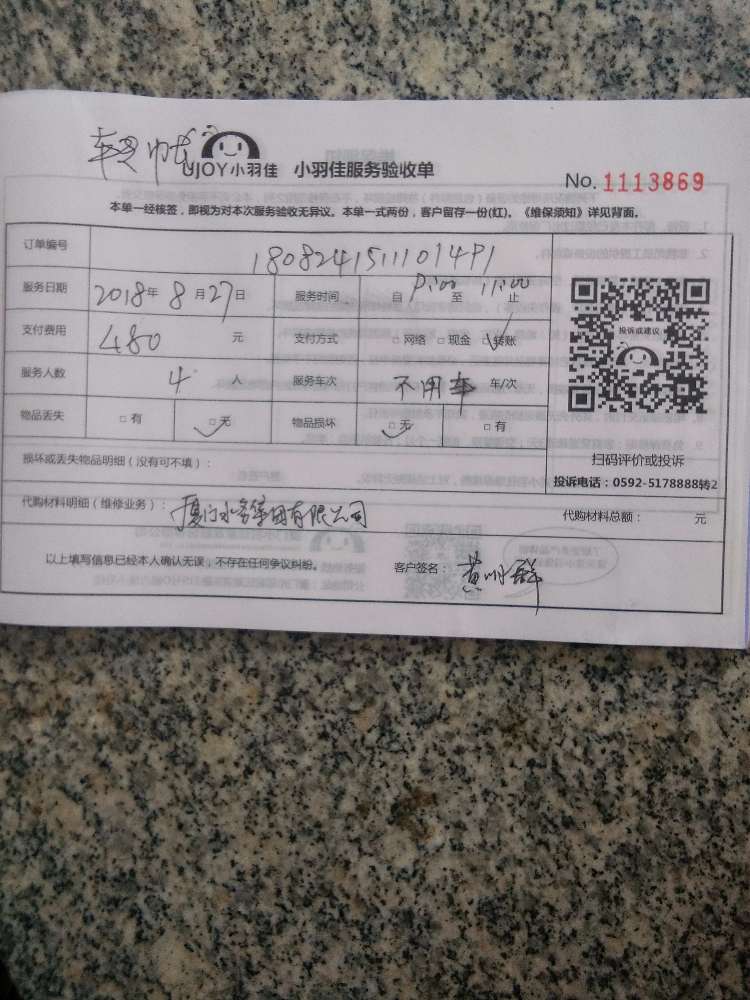 UJOY小羽佳 小羽佳服务验收单
No. 1113869
本单一经核签，即视为对本次服务验收无异议。本单一式两份，客户留存一份(红)。《维保须知》详见背面。
订单编号
服务日期 2018年 8月27日 服务时间 自 至 11:00 止
支付费用 480 元 支付方式 □网络 □现金 □转账
服务人数 4 人 服务车次 不用车 车/次
物品丢失 □有 □无 物品损坏 □无 □有
投诉或建议
扫码评价或投诉
损坏或丢失物品明细（没有可不填）：
投诉电话：0592-5178888转2
代购材料明细（维修业务）：厦门水务集团有限公司 代购材料总额： 元
以上填写信息已经本人确认无误，不存在任何争议纠纷。 客户签名：